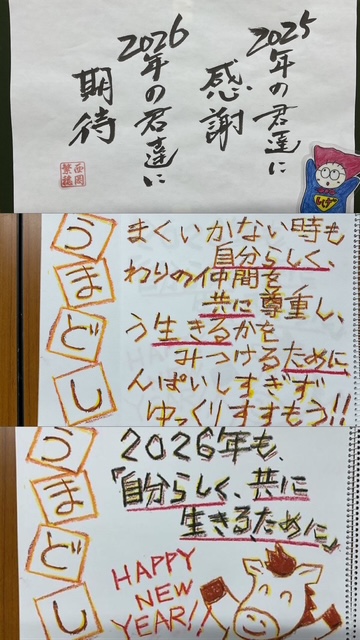 2025年の君達に
感謝
2026年の君達に
期待
う まくいかない時も
自分らしく、
ま わりの仲間を
共に尊重し、
ど う生きるかを
みつけるために、
し んぱいしすぎず
ゆっくりすすもう!!
う
ま
ど
し
2026年も、
「自分らしく、共に
生きる、ために」
HAPPY
NEW
YEAR!!